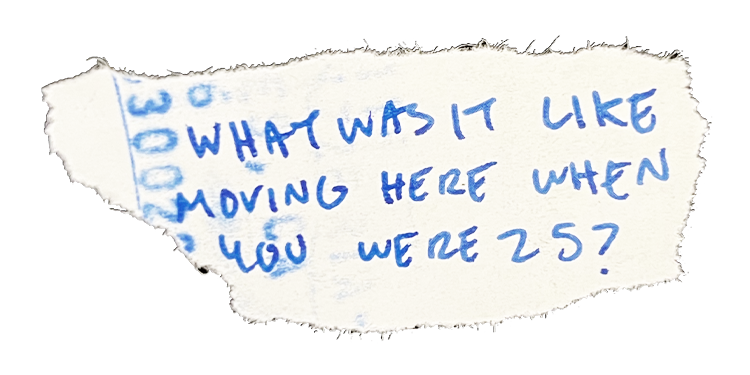 WHAT WAS IT LIKE
MOVING HERE WHEN
YOU WERE 25?